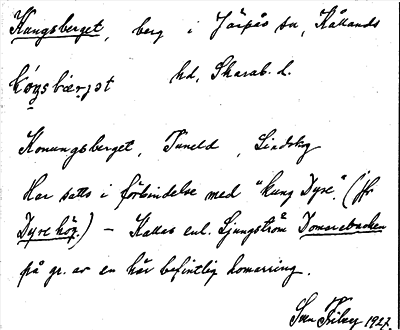 Kungsberget, berg i Järpås sn, Kållands
hd, Skarab. l.
Konungsberget, Tuneld, Lindskog
Har satts i förbindelse med "kung Dyre". (Jfr
Dyre hög.) – Kallas enl. Ljungström Domarebacken
på gr. av en här befintlig domarring.
1927.